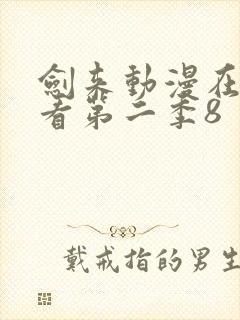 劍來動漫在
看第二季8
戴戒指的男生